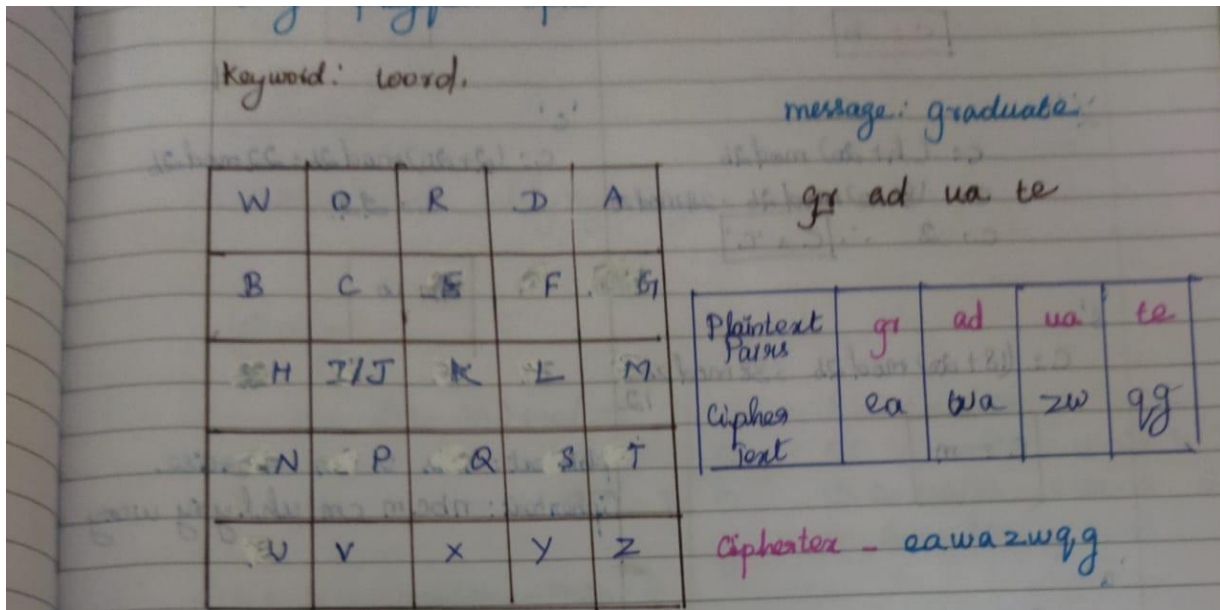 Keyword: word.
message: graduate
gr ad ua te
W O R D A
B C E F G
H I/J K L M
N P Q S T
U V X Y Z
Plaintext Pairs gr ad ua te
Cipher Text ea wa zw qg
Ciphertex - eawazwqg